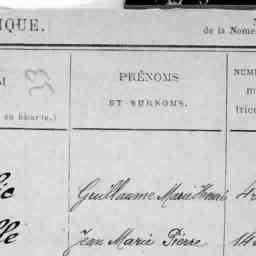 IQUE.
de la Nome
33
M
PRÉNOMS
ET SURNOMS.
NUM
m
tric
en bâtarde.)
Guillaume Marie Henri
Jean Marie Pierre
14